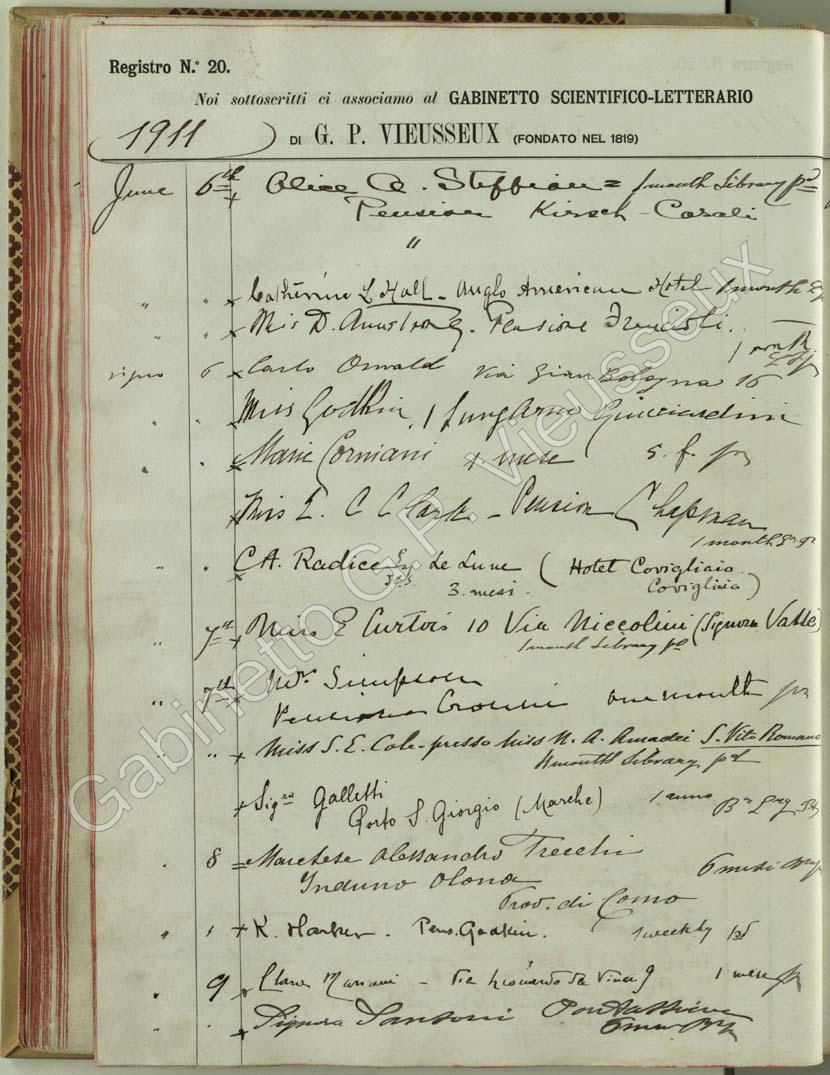 Registro N.° 20.
Noi sottoscritti ci associamo al GABINETTO SCIENTIFICO-LETTERARIO
1911 DI G. P. VIEUSSEUX (FONDATO NEL 1819)
June 6th Alice A. Steffian = 1 month Library pd
Pension Kirsch-Casali
"
" " Catherine L Hall - Anglo American Hotel 1 month
" " Miss D. Armstrong. Pensione
1 month
6 Carlo Oswald Via Gian Bologna 16
Miss Godkin, 1 Lung'Arno Guicciardini
" " Marie Corniani 1 mese s. f.
Miss E. C Clark - Pension Chapman
1 month
" " CA. Radice Esq Le Lune (Hotel Covigliaio
3. mesi. Covigliaio)
" 7th Miss E Curtois 10 Via Niccolini (Signora Valle)
1 month Library pd
" 7th Mrs Simpson
Pensione one month
" " Miss S. E. Cole - presso Miss M. A. Amadei S. Vito Romano
month Library pd
Sigra Galletti
Porto S. Giorgio (Marche) 1 anno
8 Marchese Alessandro Trecchi
Induno Olona 6 mesi
Prov. di Como
" K. Harker. Pens. Godkin. 1 weekly pd
" 9 Clara Mariani - Via Leonardo da Vinci 9 1 mese
" Signora Sansoni Pontassieve
Gabinetto G.P. Vieusseux